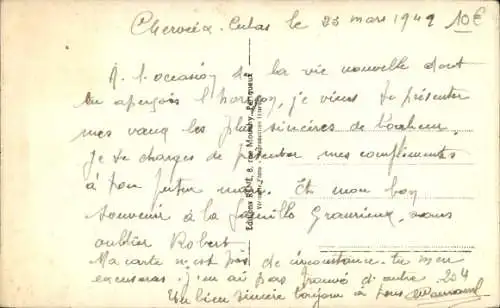 Cherveix-Cubas le 23 mars 1949 10€
A l'occasion de la vie nouvelle dont
tu aperçois l'horizon, je viens te présenter
mes vœux les plus sincères de bonheur.
Je te charges de présenter mes compliments
à ton futur mari. Et mon bon
souvenir à la famille sans
oublier Robert
Ma carte n'est pas de circonstance. tu m'en
excuseras. J'en ai pas trouvé d'autre 204
Un bien sincère bonjour à tous
Editions 8, rue Périgueux